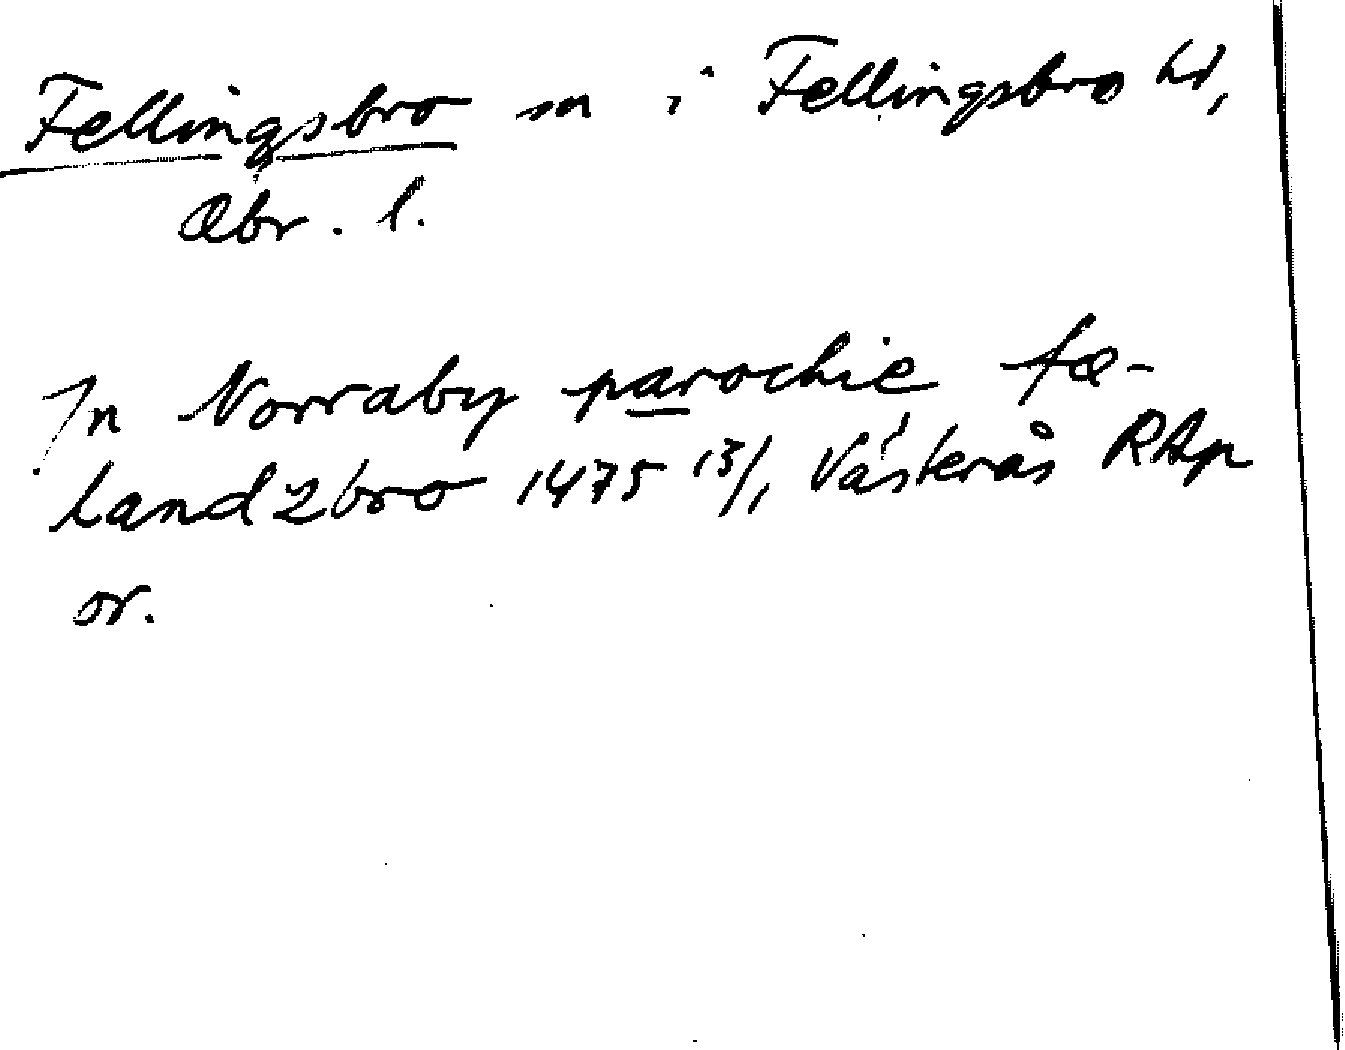 Fellingsbro sn i Fellingsbro hd,
Öbr. l.
In Norraby parochie fæ-
landzbro 1475 13/1 Västerås RAp
or.